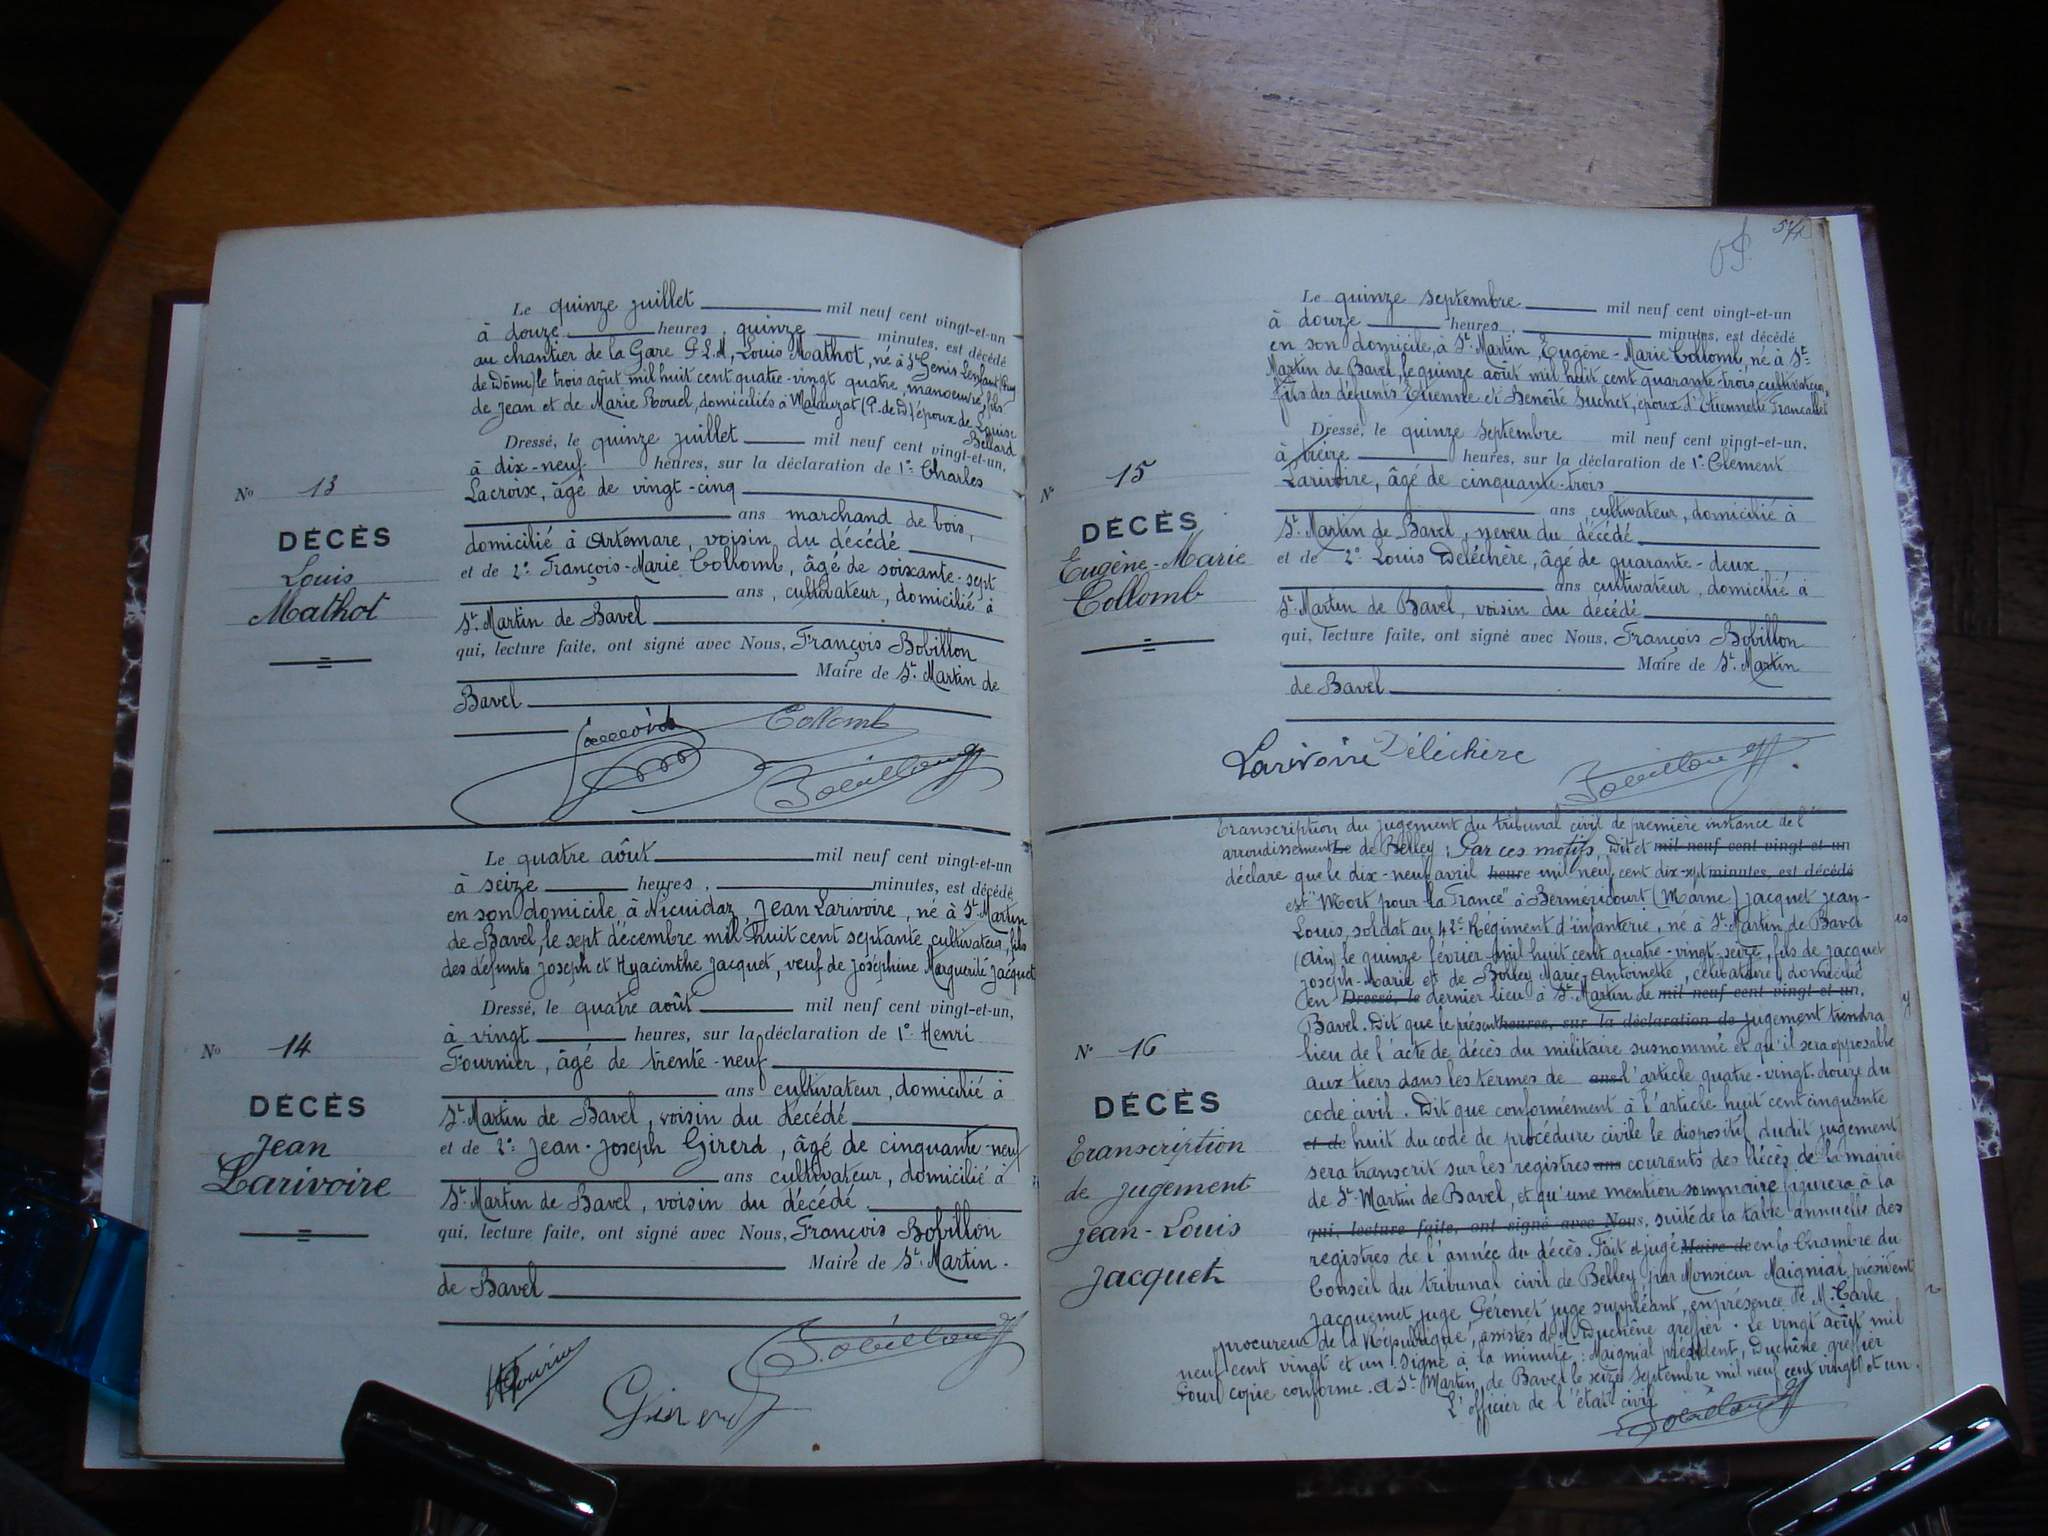 Le quinze juillet mil neuf cent vingt-et-un
à douze heures, quinze minutes, est décédé
au chantier de la Gare P.L.M, Louis Mathot, né à St Genis Lenfant (Puy
de Dôme) le trois août mil huit cent quatre-vingt quatre, manoeuvre, fils
de Jean et de Marie Rouel, domiciliés à Malauzat (P.-de-D) époux de Louise
Bellard
Dressé, le quinze juillet mil neuf cent vingt-et-un,
à dix-neuf heures, sur la déclaration de 1°: Charles
Lacroix, âgé de vingt-cinq
ans marchand de bois,
domicilié à Artemare, voisin du décédé
et de 2°: François-Marie Collomb, âgé de soixante-sept
ans, cultivateur, domicilié à
St Martin de Bavel
qui, lecture faite, ont signé avec Nous, François Bobillon
Maire de St Martin de
Bavel
N° 13
DÉCÈS
Louis
Mathot
Collomb
Bobillon
Le quatre août mil neuf cent vingt-et-un
à seize heures, minutes, est décédé
en son domicile, à Jean Larivoire, né à St Martin
de Bavel, le sept décembre mil huit cent septante, cultivateur, fils
des défunts Joseph et Hyacinthe Jacquet, veuf de Joséphine Marguerite Jacquet
Dressé, le quatre août mil neuf cent vingt-et-un,
à vingt heures, sur la déclaration de 1° Henri
Fournier, âgé de trente-neuf
ans cultivateur, domicilié à
St Martin de Bavel, voisin du décédé
et de 2°: Jean-Joseph Girerd, âgé de cinquante-neuf
ans cultivateur, domicilié à
St Martin de Bavel, voisin du décédé
qui, lecture faite, ont signé avec Nous, François Bobillon
Maire de St Martin
de Bavel
N° 14
DÉCÈS
Jean
Larivoire
Girerd
Bobillon
Le quinze septembre mil neuf cent vingt-et-un
à douze heures, minutes, est décédé
en son domicile, à St Martin, Eugène-Marie Collomb, né à St
Martin de Bavel, le quinze août mil huit cent quarante-trois, cultivateur,
fils des défunts Etienne et Benoîte Suchet, époux d'Etiennette Francallet
Dressé, le quinze septembre mil neuf cent vingt-et-un,
à treize heures, sur la déclaration de 1°: Clément
Larivoire, âgé de cinquante-trois
ans cultivateur, domicilié à
St Martin de Bavel, neveu du décédé
et de 2° Louis Deléchère, âgé de quarante-deux
ans cultivateur, domicilié à
St Martin de Bavel, voisin du décédé
qui, lecture faite, ont signé avec Nous, François Bobillon
Maire de St Martin
de Bavel
N° 15
DÉCÈS
Eugène-Marie
Collomb
Larivoire Déléchère
Bobillon
Transcription du jugement du tribunal civil de première instance de l'
arrondissement Le de Belley : Par ces motifs, Dit et mil neuf cent vingt et un
déclare que le dix-neuf avril heure mil neuf cent dix-sept minutes, est décédé
est "Mort pour la France" à Berméricourt (Marne) Jacquet Jean-
Louis, soldat au 42e Régiment d'infanterie, né à St Martin de Bavel
(Ain) le quinze février mil huit cent quatre-vingt-seize, fils de Jacquet
Joseph-Marie et de Bolley Marie-Antoinette, célibataire, domicilié
en Dressé, le dernier lieu à St Martin de mil neuf cent vingt et un,
Bavel. Dit que le présent heures, sur la déclaration de jugement tiendra
lieu de l'acte de décès du militaire susnommé et qu'il sera opposable
aux tiers dans les termes de ans l'article quatre-vingt-douze du
code civil. Dit que conformément à l'article huit cent cinquante
et de huit du code de procédure civile le dispositif dudit jugement
sera transcrit sur les registres ans courants des décès de la mairie
de St Martin de Bavel, et qu'une mention sommaire figurera à la
qui, lecture faite, ont signé avec Nous, suite de la table annuelle des
registres de l'année du décès. Fait et jugé Maire de en la Chambre du
Conseil du tribunal civil de Belley, par Monsieur Maignial, président
Jacquemet juge, Géronet juge suppléant, en présence de M. Carle
procureur de la République, assistés de M. Duchêne greffier. Le vingt août mil
neuf cent vingt et un. Signé à la minute : Maignial président, Duchêne greffier
Pour copie conforme. A St Martin de Bavel le seize septembre mil neuf cent vingt et un.
L'officier de l'état civil
Bobillon
N° 16
DÉCÈS
Transcription
de jugement
Jean-Louis
Jacquet